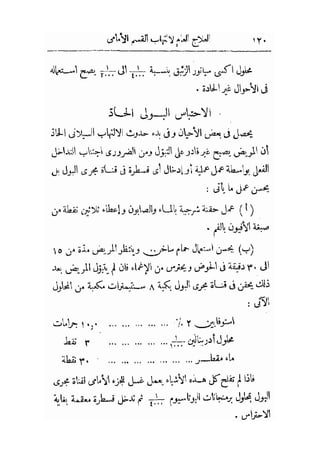 ١٢٠ العلاج العام لالتهاب القسم الأمامى
محلول اكسى سيانور الزئبق بنسبة ١/٤٠٠٠ الى ١/٦٠٠٠ يصح استعماله
فى الأحوال غير الحادة .
الاحتباس البولى الحاد
يحصل فى بعض الأحيان وفى بدء حدوث الالتهاب السيلانى الحاد
أن المريض يصبح غير قادر على التبول ومن الضرورى اجتناب التداخل
الفعلى بواسطة عمل عملية أو إدخال أى قسطرة فى قناة مجرى البول بل
يحسن عمل ما يأتى :
( أ ) عمل حقنة شرجية بالماء والصابون وإعطاء ثلاثين نقطة من
صبغة الأفيون بالفم .
(ب) يحسن استعمال حمام ساخن وينتظر المريض مدة من ١٥
الى ٣٠ دقيقة فى الحوض ويحترس من الإغماء فان لم يتبول المريض بعد
ذلك يحقن فى قناة مجرى البول بكمية ٨ سنتيمترات مكعبة من المحلول
الآتى :
استوفايين ٢ ٪ ... ... ... ... ١٠,٠ جرامات
محلول أدرينالين ١/١٠٠٠ ... ... ... ... ٣ نقط
ماء مقطر ... ... ... ... ... ... ... ٣٠ نقطة
فاذا لم تفلح كل هذه الأشياء يعمل غسل للجزء الأمامى لقناة مجرى
البول بمحلول برمنجانات البوتاسيوم ١/٤٠٠٠ ثم تدخل قسطرة معقمة بغاية
الاحتراس .